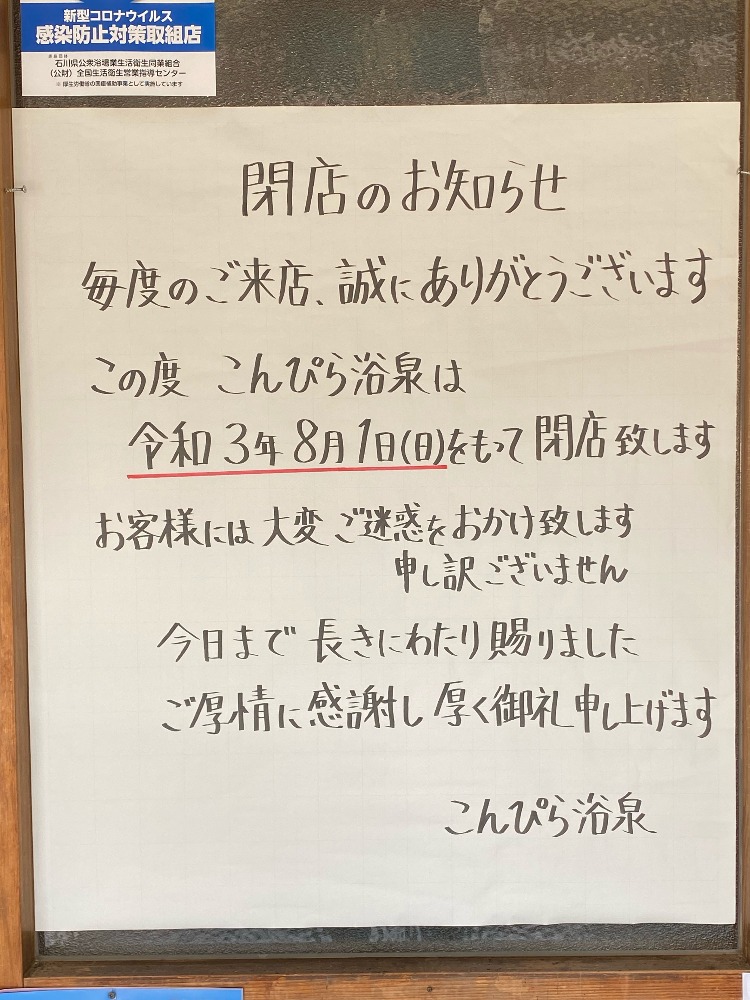 新型コロナウイルス
感染防止対策取組店
石川県公衆浴場業生活衛生同業組合
（公財）全国生活衛生営業指導センター
※厚生労働省の国庫補助事業として実施しています
閉店のお知らせ
毎度のご来店、誠にありがとうございます
この度 こんぴら浴泉は
令和3年8月1日(日)をもって閉店致します
お客様には大変ご迷惑をおかけ致します
申し訳ございません
今日まで長きにわたり賜りました
ご厚情に感謝し厚く御礼申し上げます
こんぴら浴泉